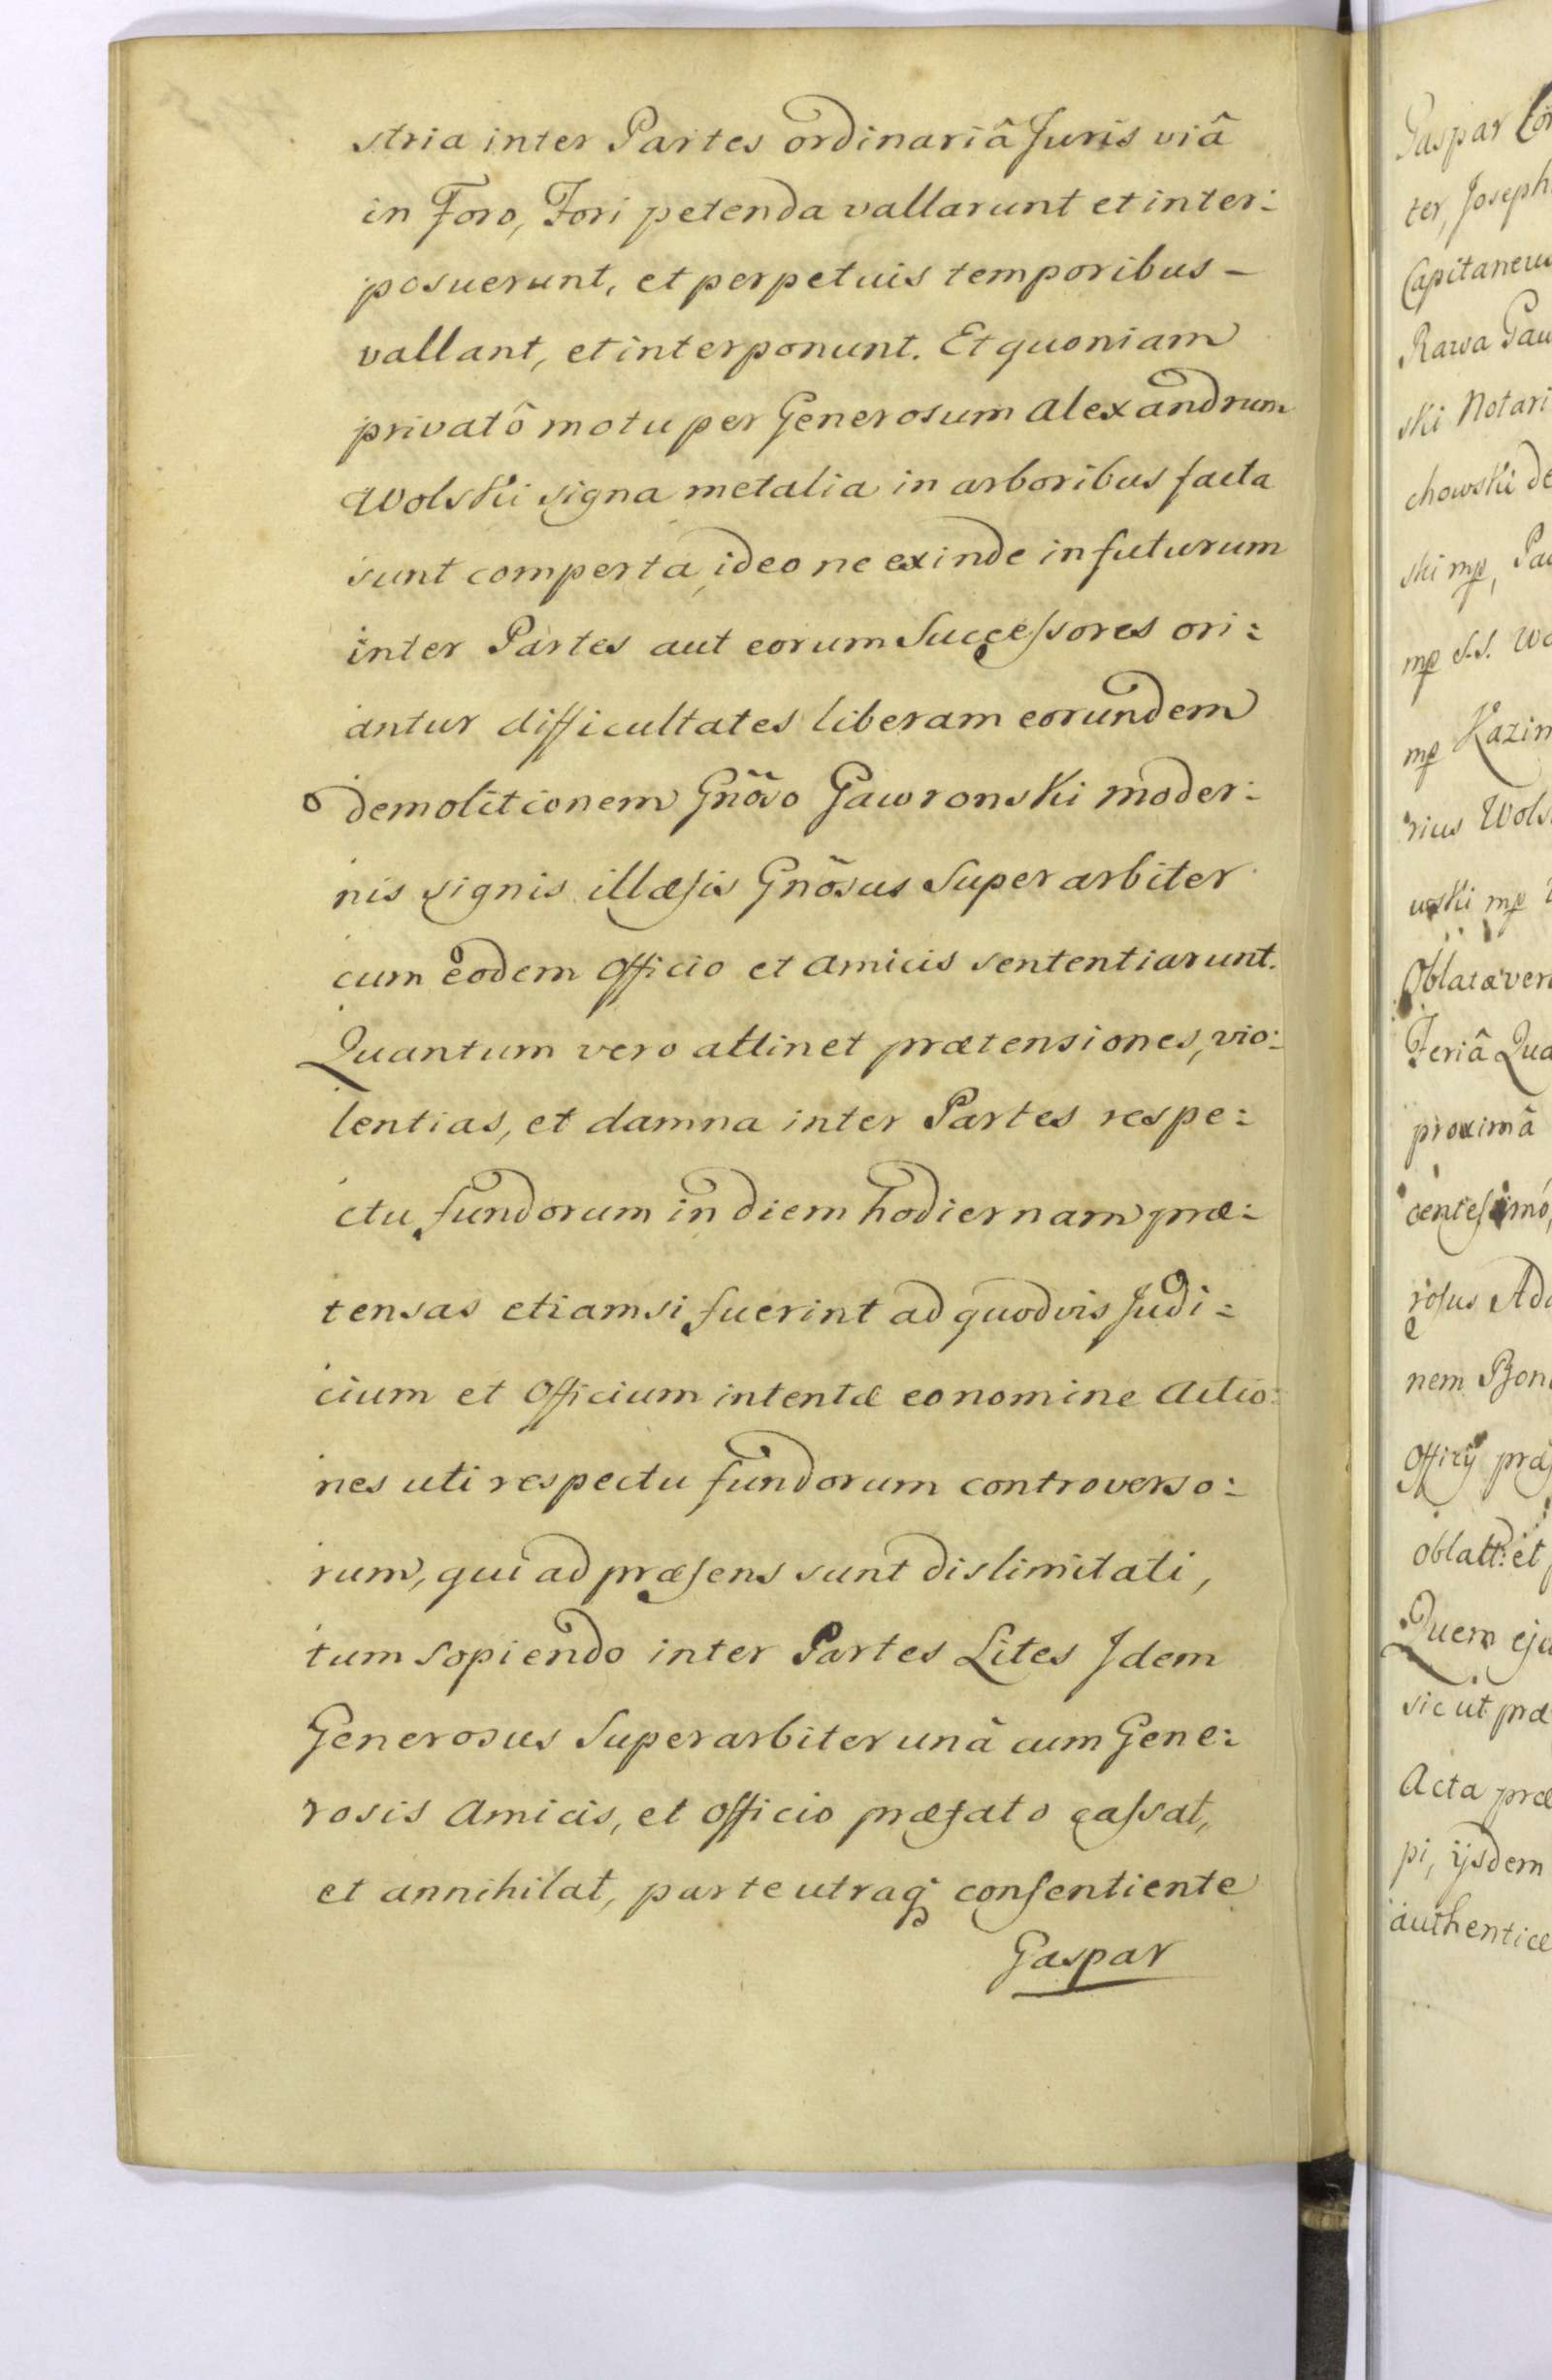 stria inter Partes ordinariâ Juris viâ
in Foro, Fori petenda vallarunt et inter:
posuerunt, et perpetuis temporibus –
vallant, et interponunt. Et quoniam
privatô motu per Generosum Alexandrum
Wolski signa metalia in arboribus facta
sunt comperta, ideo ne exinde in futurum
inter Partes aut eorum Succeſsores ori:
antur difficultates liberam eorundem
demolitionem Gnõso Gawronski moder:
nis signis illæſis Gnõsus Superarbiter
cum eodem Officio et Amicis sententiarunt.
Quantum vero attinet prætensiones, vio:
lentias, et damna inter Partes respe:
ctu fundorum in diem hodiernam præ:
tensas etiamsi fuerint ad quodvis Judi:
cium et Officium intentæ eo nomine Actio:
nes uti respectu fundorum controverso:
rum, qui ad præſens sunt dislimitati,
tum sopiendo inter Partes Lites Idem
Generosus Superarbiter unâ cum Gene:
rosis Amicis, et Officio præfato caſsat,
et annihilat, parte utraq; conſentiente
Gaspar
Gaspar
ter, Joseph
Capitaneus
Rawa Gaw
ski Notari
chowski de
ski mp,
mp S.S.
mp Kazim
rius Wols
uski mp
Oblatæ ver
Feriâ Qua
proximâ
centeſimô,
roſus Ada
nem Bon
Officÿ præ
oblatt: et
Quem eju
sic ut præ
Acta præ
pi, ijsdem
authentice